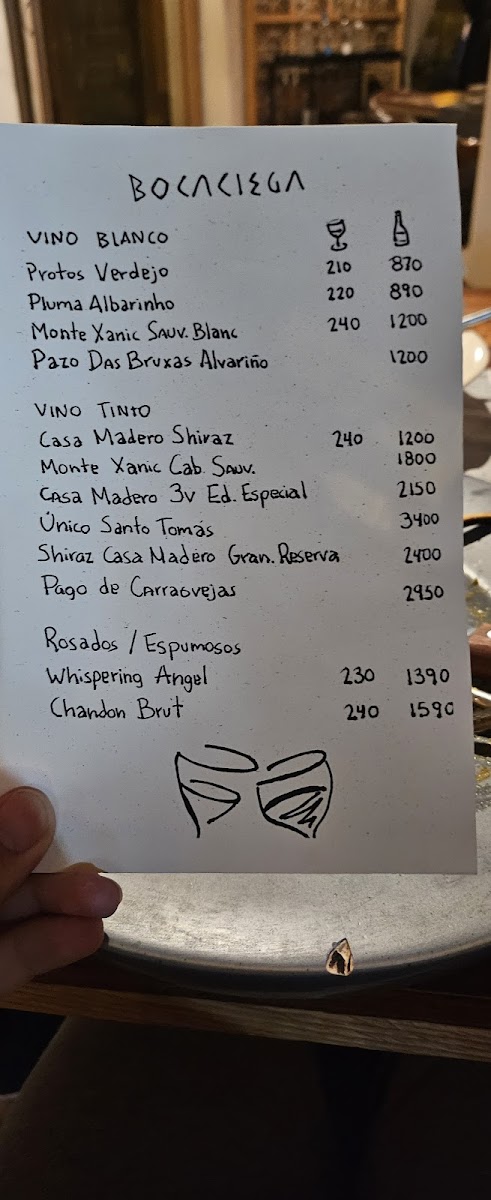 BOCACIEGA
VINO BLANCO
Protos Verdejo 210 870
Pluma Albarinho 220 890
Monte Xanic Sauv. Blanc 240 1200
Pazo Das Bruxas Alvariño 1200
VINO TINTO
Casa Madero Shiraz 240 1200
Monte Xanic Cab. Sauv. 1800
Casa Madero 3v Ed. Especial 2150
Único Santo Tomás 3400
Shiraz Casa Madero Gran. Reserva 2400
Pago de Carrasvejas 2950
Rosados / Espumosos
Whispering Angel 230 1390
Chandon Brut 240 1590